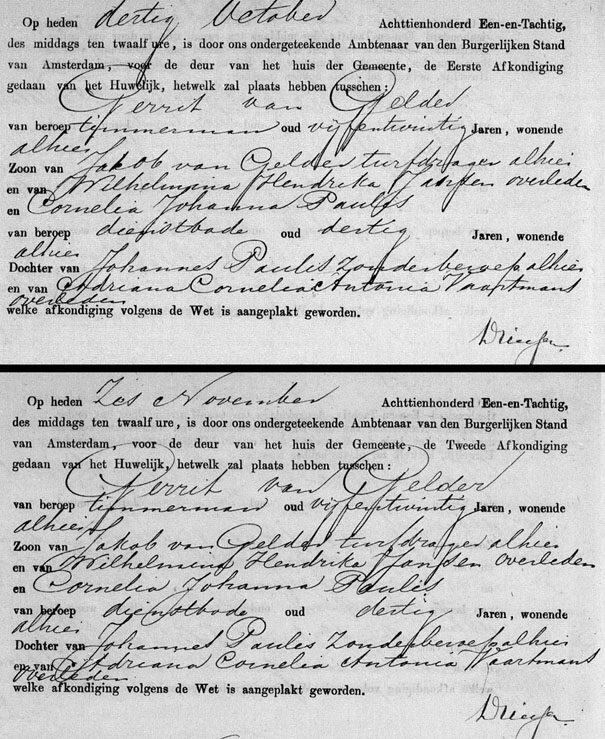 Op heden dertig October Achttienhonderd Een-en-Tachtig,
des middags ten twaalf ure, is door ons ondergeteekende Ambtenaar van den Burgerlijken Stand
van Amsterdam, voor de deur van het huis der Gemeente, de Eerste Afkondiging
gedaan van het Huwelijk, hetwelk zal plaats hebben tusschen:
Gerrit van Gelder
van beroep timmerman oud vijfentwintig Jaren, wonende
alhier
Zoon van Jakob van Gelder turfdrager alhier
en van Wilhelmina Hendrika Jansen overleden
en Cornelia Johanna Paulis
van beroep dienstbode oud dertig Jaren, wonende
alhier
Dochter van Johannes Paulis zonder beroep alhier
en van Adriana Cornelia Antonia Vaartmans
overleden
welke afkondiging volgens de Wet is aangeplakt geworden.
Op heden Zes November Achttienhonderd Een-en-Tachtig,
des middags ten twaalf ure, is door ons ondergeteekende Ambtenaar van den Burgerlijken Stand
van Amsterdam, voor de deur van het huis der Gemeente, de Tweede Afkondiging
gedaan van het Huwelijk, hetwelk zal plaats hebben tusschen:
Gerrit van Gelder
van beroep timmerman oud vijfentwintig Jaren, wonende
alhier
Zoon van Jakob van Gelder turfdrager alhier
en van Wilhelmina Hendrika Jansen overleden
en Cornelia Johanna Paulis
van beroep dienstbode oud dertig Jaren, wonende
alhier
Dochter van Johannes Paulis zonder beroep alhier
en van Adriana Cornelia Antonia Vaartmans
overleden
welke afkondiging volgens de Wet is aangeplakt geworden.